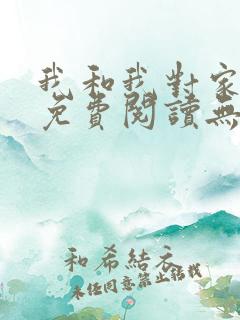 我和我對家
免費閱讀無
和希結衣
未经同意禁止转载